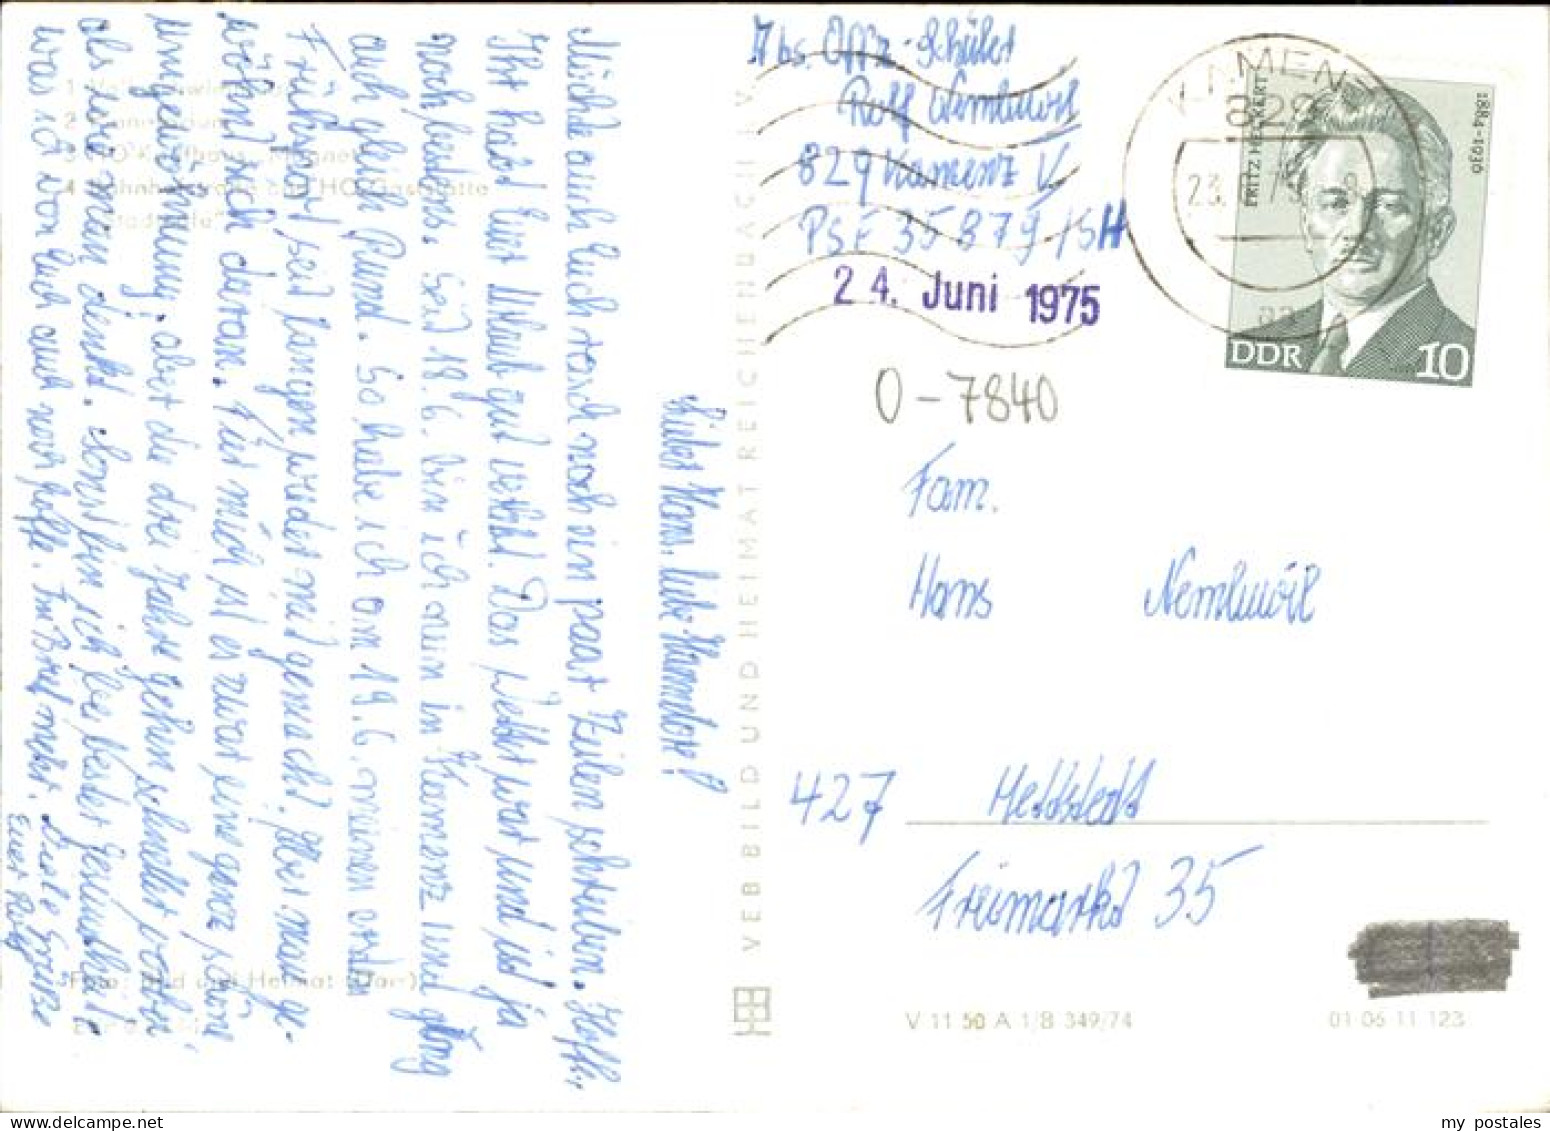 Lieber Hans, liebe Hannelore!
Möchte auch Euch rasch noch ein paar Zeilen schreiben. Hoffe,
Ihr habt Euer Urlaub gut verlebt. Das Wetter war und ist ja
noch bestens. Seit 18.6. bin ich nun in Kamenz und ging
auch gleich Rund. So habe ich am 19.6. meinen ersten
Frühsport seit langem wieder mit gemacht. Aber man ge-
wöhnt sich daran. Für mich ist es zwar eine ganz schöne
Umgewöhnung, aber die drei Jahre gehen schneller vorbei
als wie man denkt. Sonst bin ich bei bester Gesundheit
was ich von Euch auch nur hoffe. Im Brief mehr. Viele Grüße
Euer Rolf
3 HO-Kaufhaus "Magnet"
4 Bahnhofstraße und HO-Gaststätte
Foto: Bild und Heimat
VEB BILD UND HEIMAT REICHENBACH I. V.
Abs. Offz.-Schüler
Rolf
829 Kamenz V
PSF 35 879/SH
24. Juni 1975
KAMENZ
829
FRITZ HECKERT
1884-1936
DDR
10
O-7840
Fam.
Hans
427 Hettstedt
Freimarkt 35
V 11 50 A 1/B 349/74
01 06 11 123
my_postales